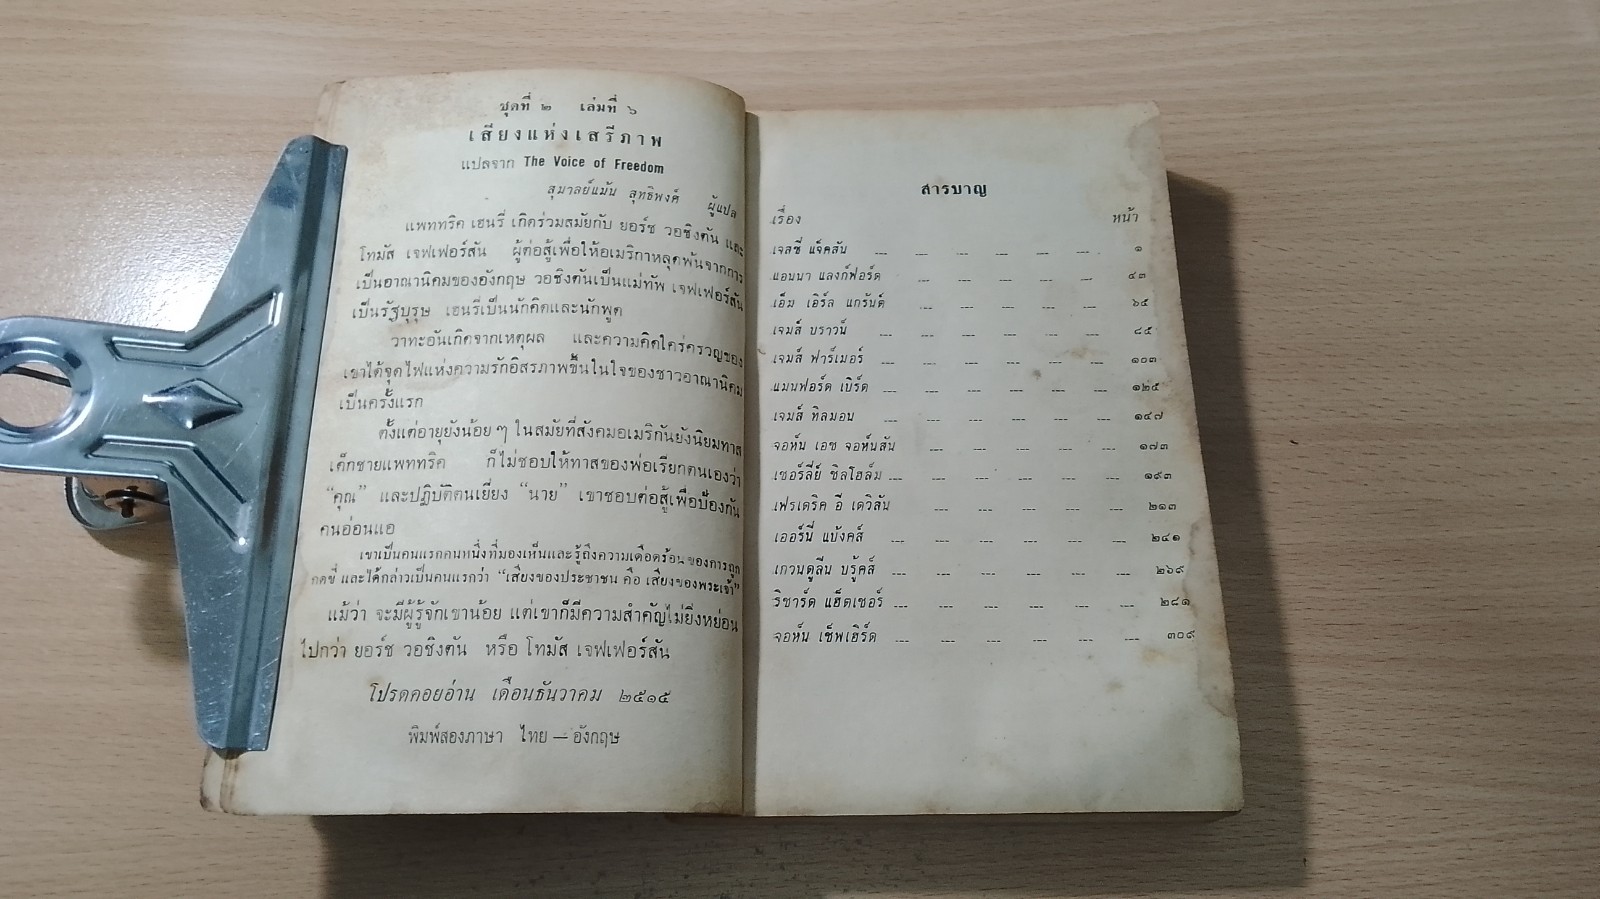 ชุดที่ ๒ เล่มที่ ๖
เสียงแห่งเสรีภาพ
แปลจาก The Voice of Freedom
สุมาลย์แม้น สุทธิพงศ์ ผู้แปล
แพททริค เฮนรี่ เกิดร่วมสมัยกับ ยอร์ช วอชิงตัน และ
โทมัส เจฟเฟอร์สัน ผู้ต่อสู้เพื่อให้อเมริกาหลุดพ้นจากการ
เป็นอาณานิคมของอังกฤษ วอชิงตันเป็นแม่ทัพ เจฟเฟอร์สัน
เป็นรัฐบุรุษ เฮนรี่เป็นนักคิดและนักพูด
วาทะอันเกิดจากเหตุผล และความคิดใคร่ครวญของ
เขาได้จุดไฟแห่งความรักอิสรภาพขึ้นในใจของชาวอาณานิคม
เป็นครั้งแรก
ตั้งแต่อายุยังน้อย ๆ ในสมัยที่สังคมอเมริกันยังนิยมทาส
เด็กชายแพททริค ก็ไม่ชอบให้ทาสของพ่อเรียกตนเองว่า
“คุณ” และปฏิบัติตนเยี่ยง “นาย” เขาชอบต่อสู้เพื่อป้องกัน
คนอ่อนแอ
เขาเป็นคนแรกคนหนึ่งที่มองเห็นและรู้ถึงความเดือดร้อนของการถูก
กดขี่ และได้กล่าวเป็นคนแรกว่า “เสียงของประชาชน คือ เสียงของพระเจ้า”
แม้ว่า จะมีผู้รู้จักเขาน้อย แต่เขาก็มีความสำคัญไม่ยิ่งหย่อน
ไปกว่า ยอร์ช วอชิงตัน หรือ โทมัส เจฟเฟอร์สัน
โปรดคอยอ่าน เดือนธันวาคม ๒๕๑๕
พิมพ์สองภาษา ไทย — อังกฤษ
สารบาญ
เรื่อง หน้า
เจสซี่ แจ็คสัน --- --- --- --- --- --- ๑
แอนนา แลงก์ฟอร์ด --- --- --- --- --- ๔๓
เอ็ม เอิร์ล แกรันต์ --- --- --- --- --- ๖๕
เจมส์ บราวน์ --- --- --- --- --- --- ๘๕
เจมส์ ฟาร์เมอร์ --- --- --- --- --- --- ๑๐๓
แมนฟอร์ด เบิร์ด --- --- --- --- --- --- ๑๒๕
เจมส์ ทิลมอน --- --- --- --- --- --- ๑๔๗
จอห์น เอช จอห์นสัน --- --- --- --- --- ๑๗๓
เชอร์ลี่ย์ ชิลโฮล์ม --- --- --- --- --- --- ๑๙๓
เฟรเดริค อี เดวิสัน --- --- --- --- --- ๒๑๓
เออร์นี่ แบ้งคส์ --- --- --- --- --- --- ๒๔๑
เกวนดูลีน บรู้คส์ --- --- --- --- --- --- ๒๖๙
ริชาร์ด แฮ็ตเชอร์ --- --- --- --- --- --- ๒๘๑
จอห์น เช็พเฮิร์ด --- --- --- --- --- --- ๓๐๙